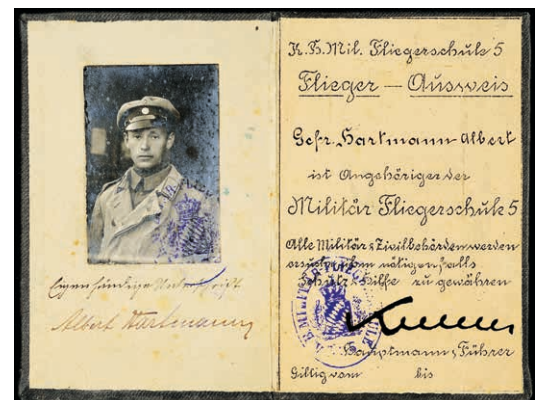 Eigenhändige Unterschrift
Albert Hartmann
K. B. Mil. Fliegerschule 5
Flieger — Ausweis
Gefr. Hartmann Albert
ist Angehöriger der
Militär Fliegerschule 5
Alle Militär & Zivilbehörden werden
ersucht ihm nötigenfalls
Schutz & Hilfe zu gewähren
Hauptmann & Führer
Giltig vom bis